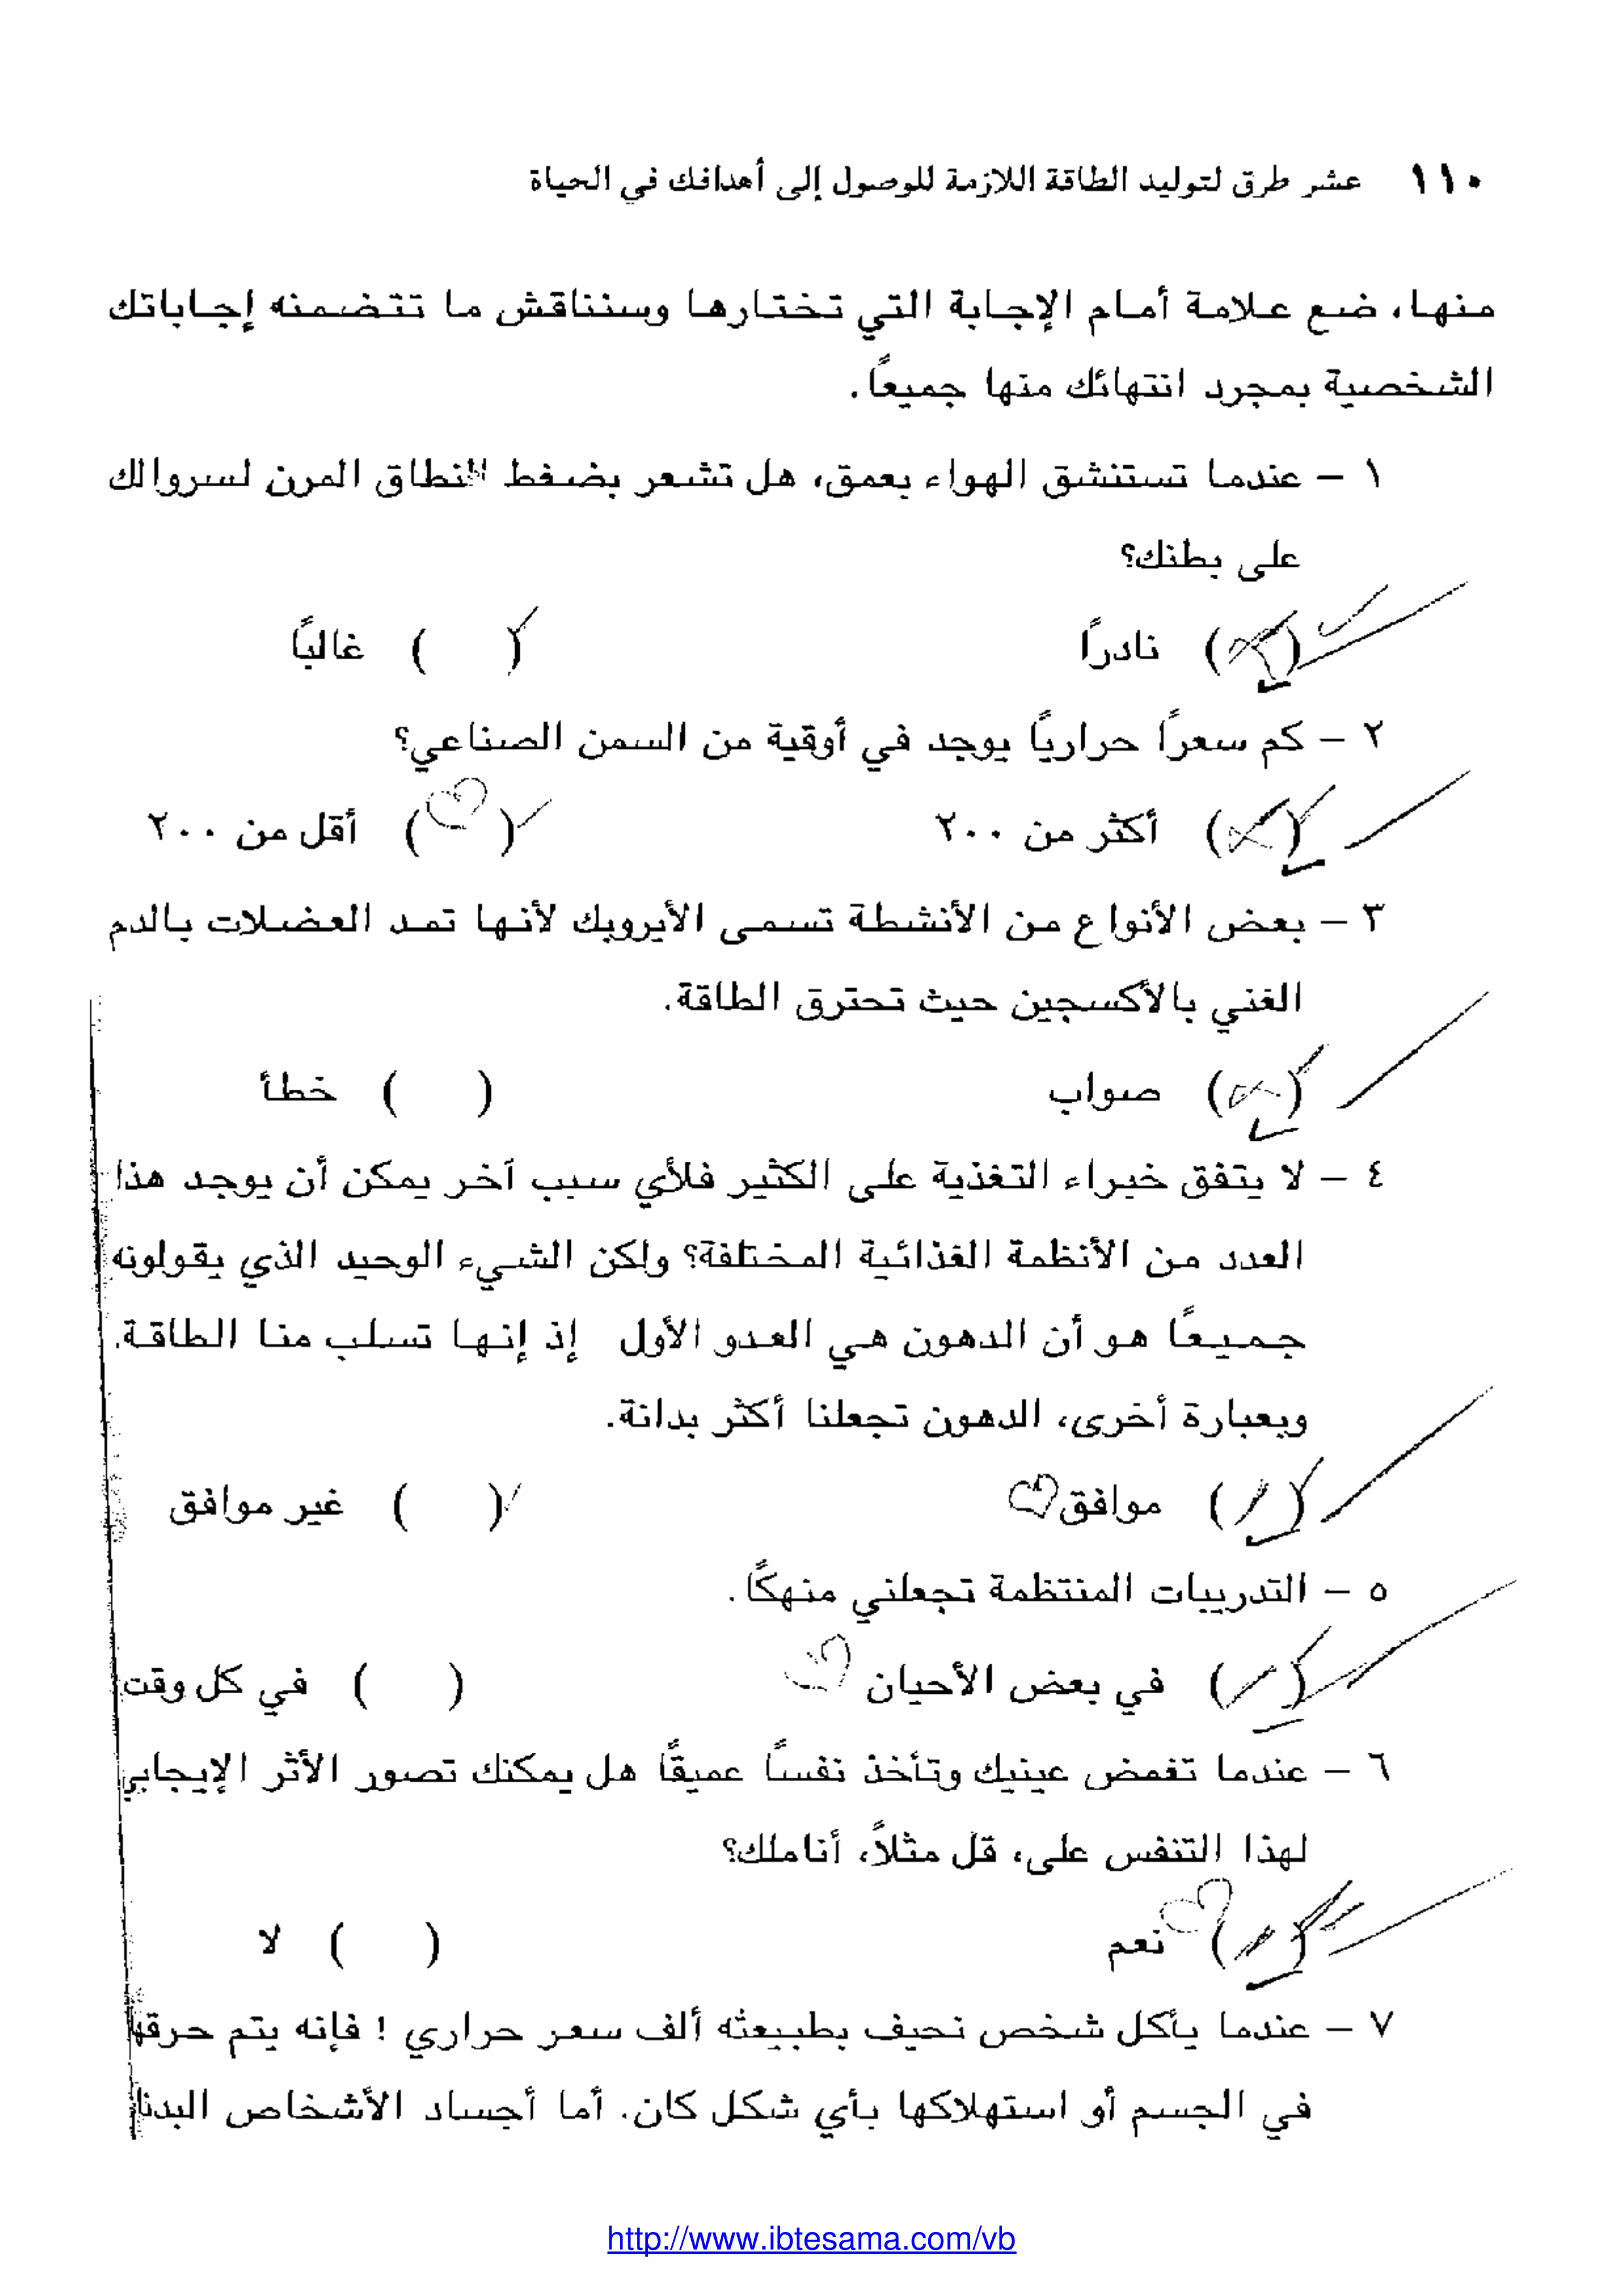 ١١٠ عشر طرق لتوليد الطاقة اللازمة للوصول إلى أهدافك في الحياة
منها، ضع علامة أمام الإجابة التي تختارها وسنناقش ما تتضمنه إجاباتك
الشخصية بمجرد انتهائك منها جميعاً.
١ – عندما تستنشق الهواء بعمق، هل تشعر بضغط النطاق المرن لسروالك
على بطنك؟
( ) نادراً ( ) غالباً
٢ – كم سعراً حرارياً يوجد في أوقية من السمن الصناعي؟
( ) أكثر من ٢٠٠ ( ) أقل من ٢٠٠
٣ – بعض الأنواع من الأنشطة تسمى الأيروبك لأنها تمد العضلات بالدم
الغني بالأكسجين حيث تحترق الطاقة.
( ) صواب ( ) خطأ
٤ – لا يتفق خبراء التغذية على الكثير فلأي سبب آخر يمكن أن يوجد هذا
العدد من الأنظمة الغذائية المختلفة؟ ولكن الشيء الوحيد الذي يقولونه
جميعاً هو أن الدهون هي العدو الأول إذ إنها تسلب منا الطاقة.
وبعبارة أخرى، الدهون تجعلنا أكثر بدانة.
( ) موافق ( ) غير موافق
٥ – التدريبات المنتظمة تجعلني منهكاً.
( ) في بعض الأحيان ( ) في كل وقت
٦ – عندما تغمض عينيك وتأخذ نفساً عميقاً هل يمكنك تصور الأثر الإيجابي
لهذا التنفس على، قل مثلاً، أناملك؟
( ) نعم ( ) لا
٧ – عندما يأكل شخص نحيف بطبيعته ألف سعر حراري ! فإنه يتم حرقها
في الجسم أو استهلاكها بأي شكل كان. أما أجساد الأشخاص البدنا
http://www.ibtesama.com/vb